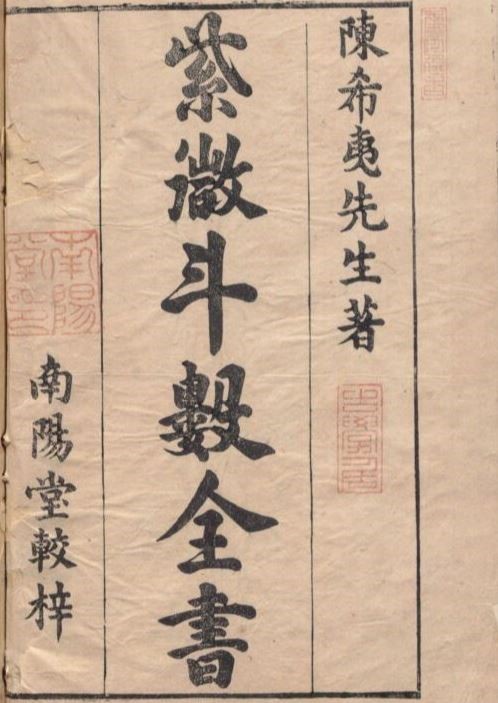 陳希夷先生著
紫微斗數全書
南陽堂較梓
南陽堂印